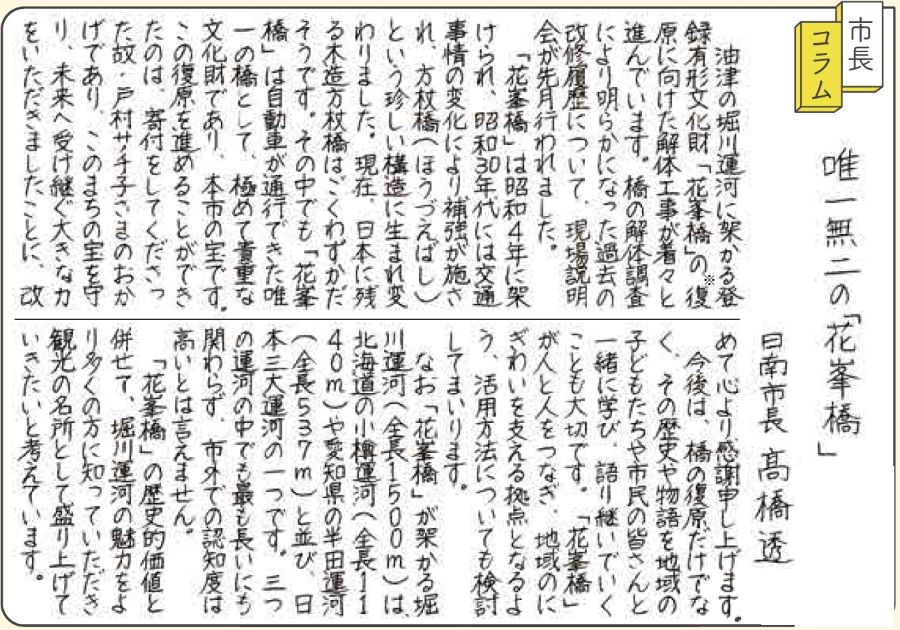 市長
コラム
唯一無二の「花峯橋」
日南市長 高橋 透
油津の堀川運河に架かる登
録有形文化財「花峯橋」の※復
原に向けた解体工事が着々と
進んでいます。橋の解体調査
により明らかになった過去の
改修履歴について、現場説明
会が先月行われました。
「花峯橋」は昭和4年に架
けられ、昭和30年代には交通
事情の変化により補強が施さ
れ、方杖橋(ほうづえばし)
という珍しい構造に生まれ変
わりました。現在、日本に残
る木造方杖橋はごくわずかだ
そうです。その中でも「花峯
橋」は自動車が通行できた唯
一の橋として、極めて貴重な
文化財であり、本市の宝です。
この復原を進めることができ
たのは、寄付をしてくださっ
た故・戸村サチ子さまのおか
げであり、このまちの宝を守
り、未来へ受け継ぐ大きな力
をいただきましたことに、改
めて心より感謝申し上げます。
今後は、橋の復原だけでな
く、その歴史や物語を地域の
子どもたちや市民の皆さんと
一緒に学び、語り継いでいく
ことも大切です。「花峯橋」
が人と人をつなぎ、地域のに
ぎわいを支える拠点となるよ
う、活用方法についても検討
してまいります。
なお「花峯橋」が架かる堀
川運河(全長1500m)は、
北海道の小樽運河(全長11
40m)や愛知県の半田運河
(全長537m)と並び、日
本三大運河の一つです。三つ
の運河の中でも最も長いにも
関わらず、市外での認知度は
高いとは言えません。
「花峯橋」の歴史的価値と
併せて、堀川運河の魅力をよ
り多くの方に知っていただき
観光の名所として盛り上げて
いきたいと考えています。